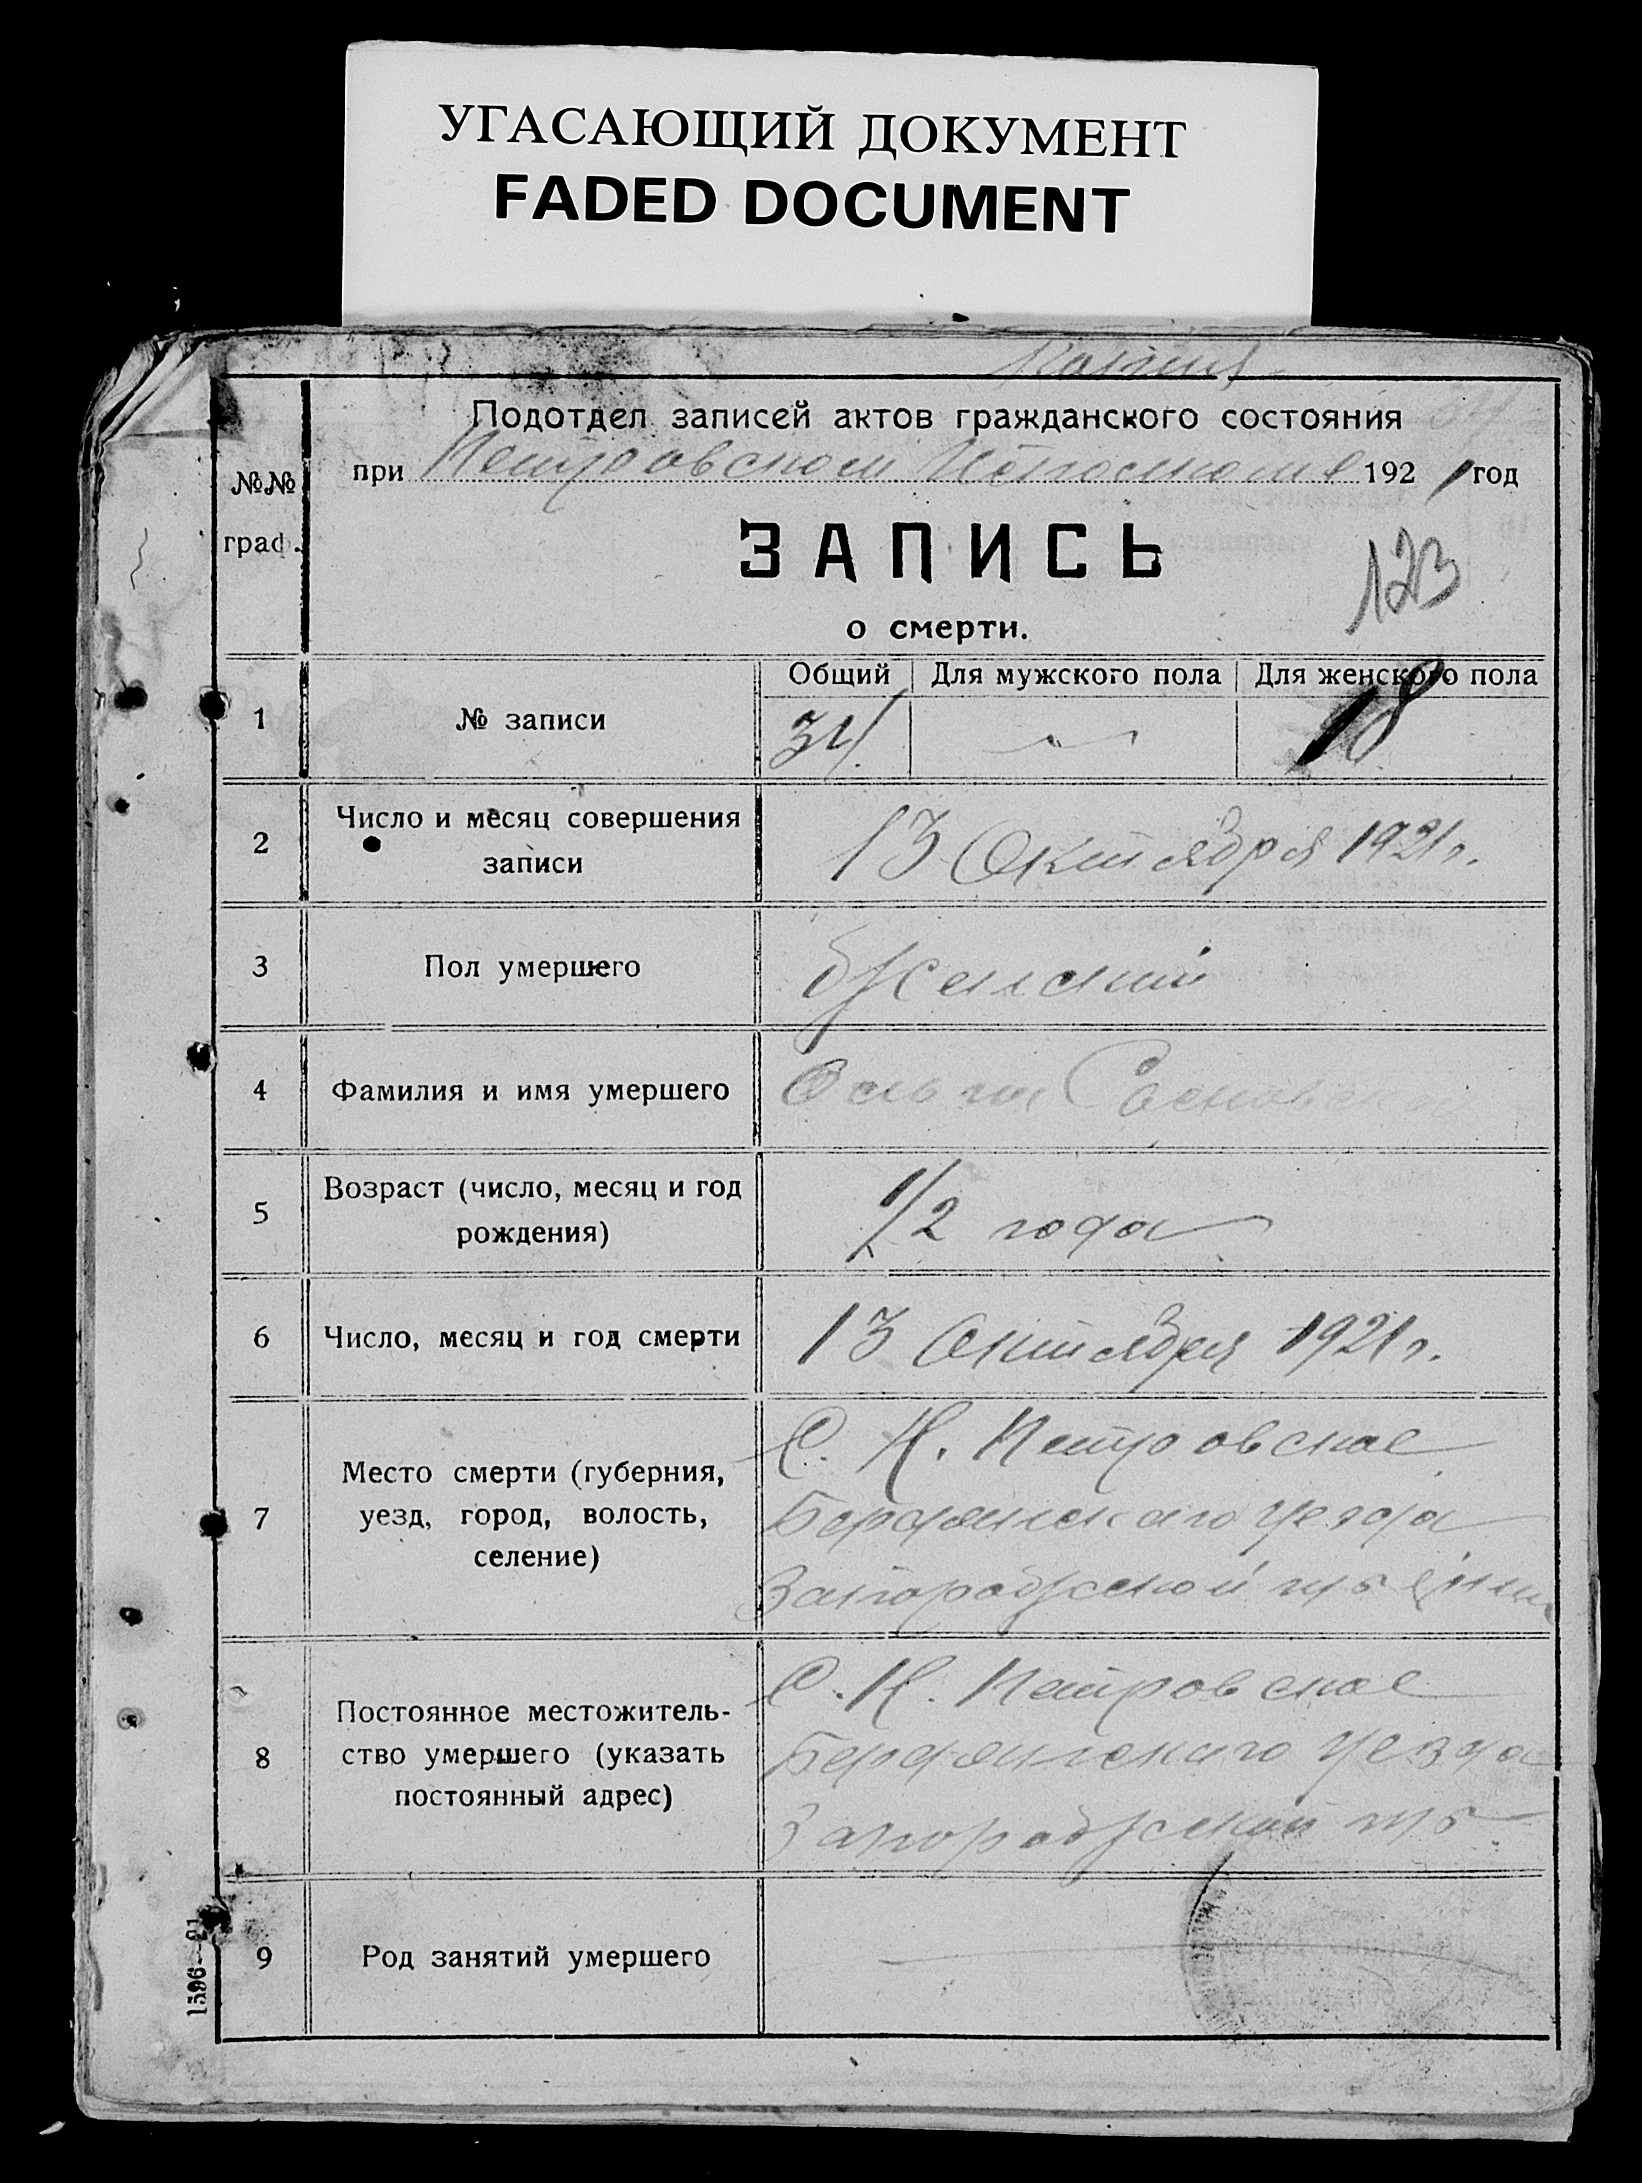 УГАСАЮЩИЙ ДОКУМЕНТ
FADED DOCUMENT
Копия
Подотдел записей актов гражданского состояния
при Петровском Исполкоме 1921 год
№№ граф.
ЗАПИСЬ
123
о смерти.
Общий Для мужского пола Для женского пола
1 № записи 34 18
2 Число и месяц совершения
записи
13 Октября 1921 г.
3 Пол умершего Женский
4 Фамилия и имя умершего Ольга
5 Возраст (число, месяц и год
рождения)
1/2 года
6 Число, месяц и год смерти 13 Октября 1921 г.
7 Место смерти (губерния,
уезд, город, волость,
селение)
С. Н. Петровское
Бердянскаго уезда
Запорожской губернии
8 Постоянное местожитель-
ство умершего (указать
постоянный адрес)
С. Н. Петровское
Бердянскаго уезда
Запорожской губ.
9 Род занятий умершего
1596—21